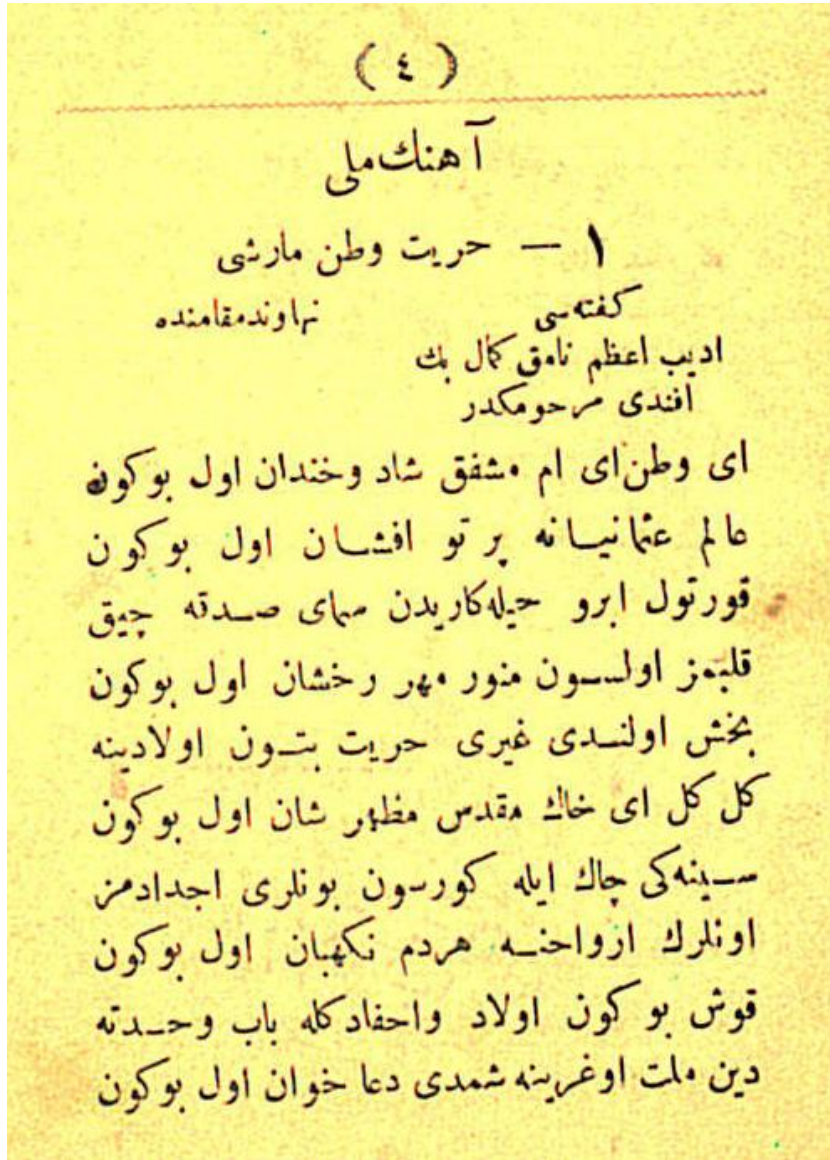 ( ٤ )
آهنك ملی
١ — حريت وطن مارشی
كفته‌سی
نهاوند مقامنده
اديب اعظم نامق كمال بك
افندی مرحومكدر
ای وطن ای ام مشفق شاد وخندان اول بوكون
عالم عثمانيانه پرتو افشان اول بوكون
قورتول ابرو حيله‌كاريدن سمای صدته چيق
قلبمز اولسون منور مهر رخشان اول بوكون
بخش اولندی غيری حريت بتون اولادينه
كل كل ای خاك مقدس مظهر شان اول بوكون
سينه‌كی چاك ايله كورسون بونلری اجدادمز
اونلرك ارواحنه هردم نكهبان اول بوكون
قوش بو كون اولاد واحفادكله باب وحدته
دين ملت اوغرينه شمدی دعا خوان اول بوكون